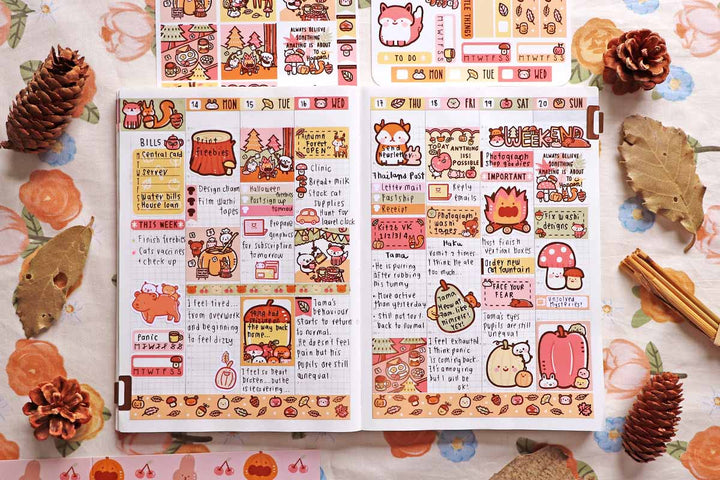 ALWAYS BELIEVE
SOMETHING
AMAZING IS ABOUT
TO Happen!
TO DO
M T W T F S S
M T W T F S S
14 MON
15 TUE
16 WED
BILLS
Central card
servey
water bills
House loan
THIS WEEK
Finish freebies
Cats vaccines
+ check up
Panic
M T W T F S S
M T W T F S S
Print
freebies
Design charm
Film Washi
tapes
I feel tired...
from overwork
and beginning
to feel dizzy.
Halloween
freebies
Post sign up
tomorrow
Prepare
graphics
for subscription
tomorrow
the way back
home...
I feel so heart
broken... but he
is recovering...
Autumn
Forest
"OPEN"
Clinic
Bread + milk
Stock cat
supplies
Hunt for
laurel clock
Tama's
behaviour
starts to return
to normal.
He doesn't feel
pain but his
pupils are still
unequal.
17 THU
18 FRI
19 SAT
20 SUN
Send
Newsletter
Thailand Post
Letter mail
Fast ship
Receipt
Kitzb VK
1/2/3/4
Tama
- He is purring
after rubbing
his tummy
- More active
than yesterday
- Still not 100%
back to normal
TODAY
ANYTHING
IS
POSSIBLE
Reply
emails
Photograph
Washi tapes
Haku
Vomit 2 times
I think he ate
too much...
Tama
Meow at
9am. like
himself!
YEY!
I feel exhausted.
I think panic
is coming back.
It's annoying
but I will be
ok!
WEEKEND
Photograph
shop goodies
IMPORTANT
Must finish
vertical boxes
Order new
cat fountain
FACE YOUR
FEAR
Tama's eyes
pupils are still
unequal...
ALWAYS BELIEVE
SOMETHING
AMAZING IS ABOUT
TO Happen!
Fix washi
designs
Unsolved
Mysteries!